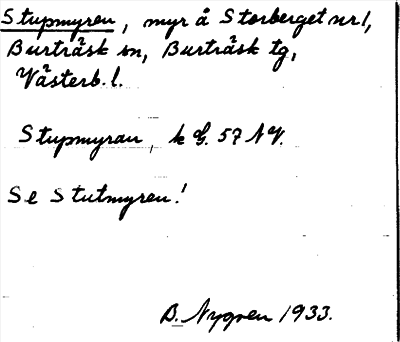 Stupmyren, myr å Storberget nr 1,
Burträsk sn, Burträsk tg,
Västerb. l.
Stupmyran, k G. 57 NV.
Se Stutmyren!
B. Nygren 1933.